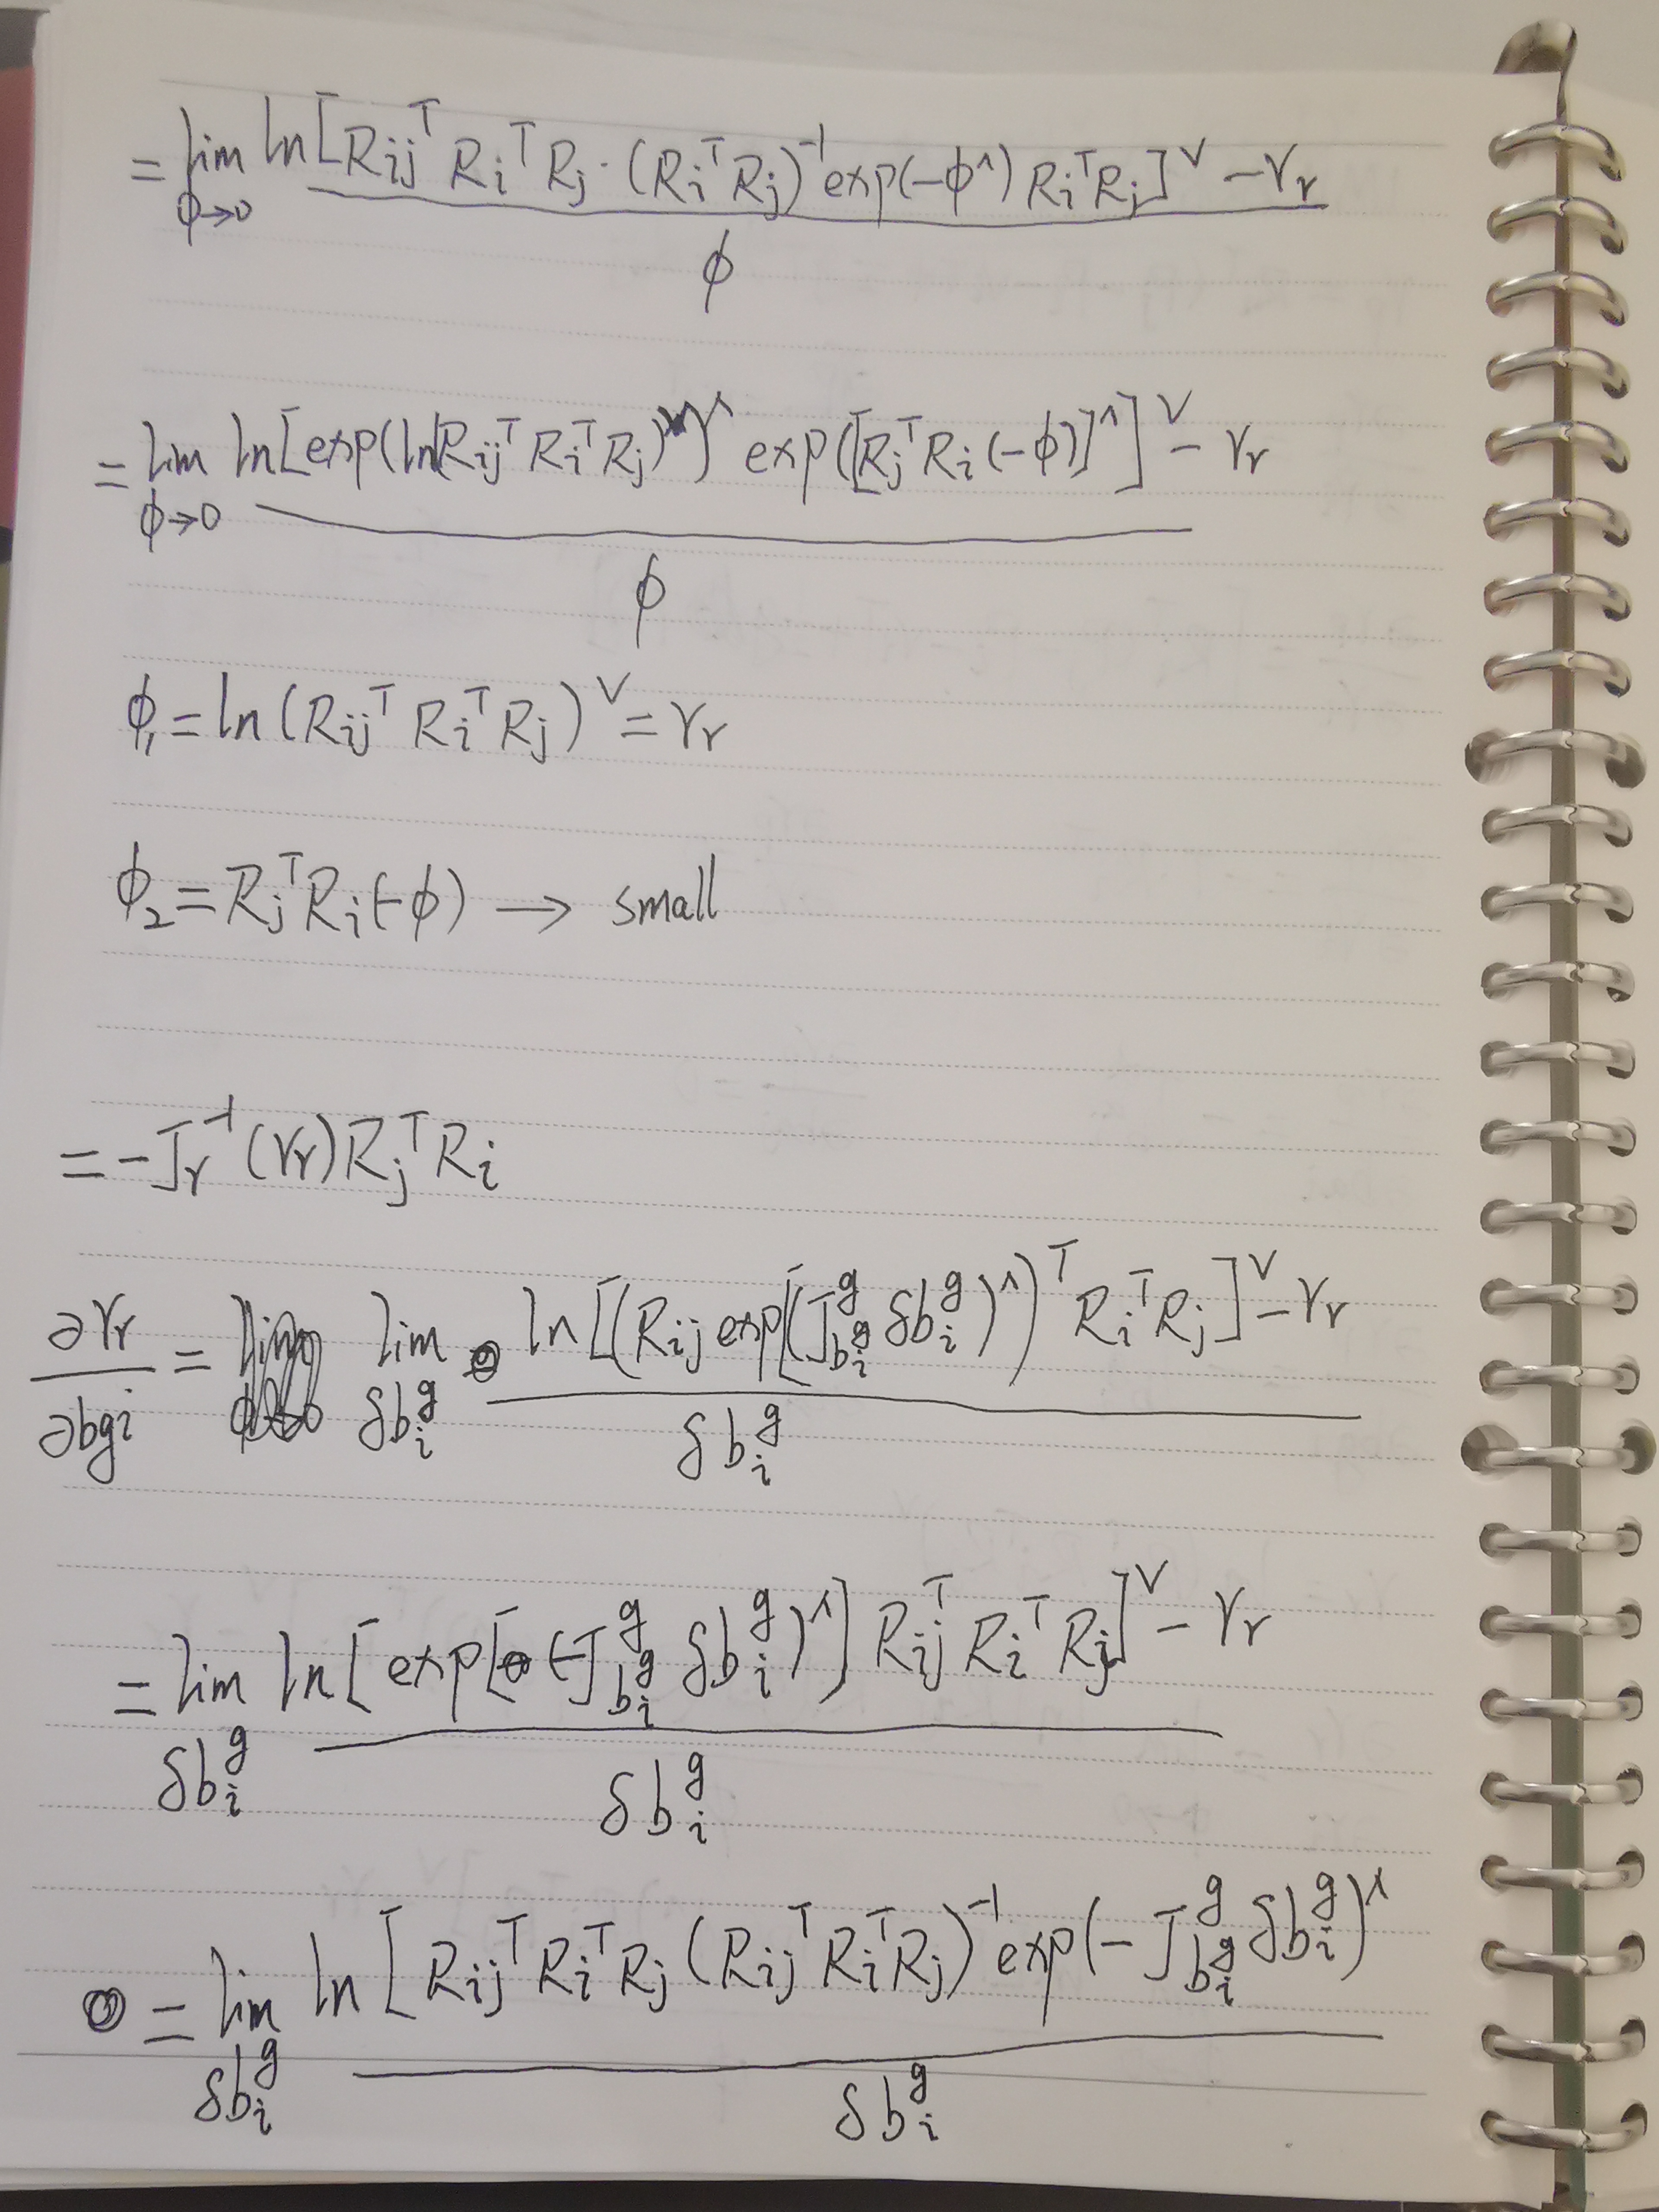 = lim_{ϕ→0} ln[R_{ij}^T R_i^T R_j · (R_i^T R_j)^{-1} exp(-ϕ^∧) R_i^T R_j]^∨ - r_r / ϕ
= lim_{ϕ→0} ln[exp(ln(R_{ij}^T R_i^T R_j)^∨)^∧ exp([R_j^T R_i (-ϕ)]^∧]^∨ - r_r / ϕ
ϕ_1 = ln(R_{ij}^T R_i^T R_j)^∨ = r_r
ϕ_2 = R_j^T R_i (-ϕ) → small
= -J_r^{-1}(r_r) R_j^T R_i
∂r_r / ∂bgi = lim_{δb_i^g} ln[(R_{ij} exp[(J_{b_i^g}^g δb_i^g)^∧)^T R_i^T R_j]^∨ - r_r / δb_i^g
= lim_{δb_i^g} ln[exp[(-J_{b_i^g}^g δb_i^g)^∧] R_{ij}^T R_i^T R_j]^∨ - r_r / δb_i^g
= lim_{δb_i^g} ln[R_{ij}^T R_i^T R_j (R_{ij}^T R_i^T R_j)^{-1} exp(-J_{b_i^g}^g δb_i^g)^∧ / δb_i^g